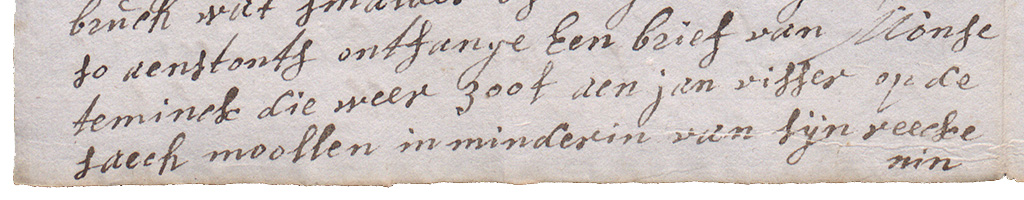 bruck wat smalder
so aenstonts ontfange Een brief van Monse
teminck die weer 300 f aen jan visser op de
saech moollen in minderin van sijn reecke
nin